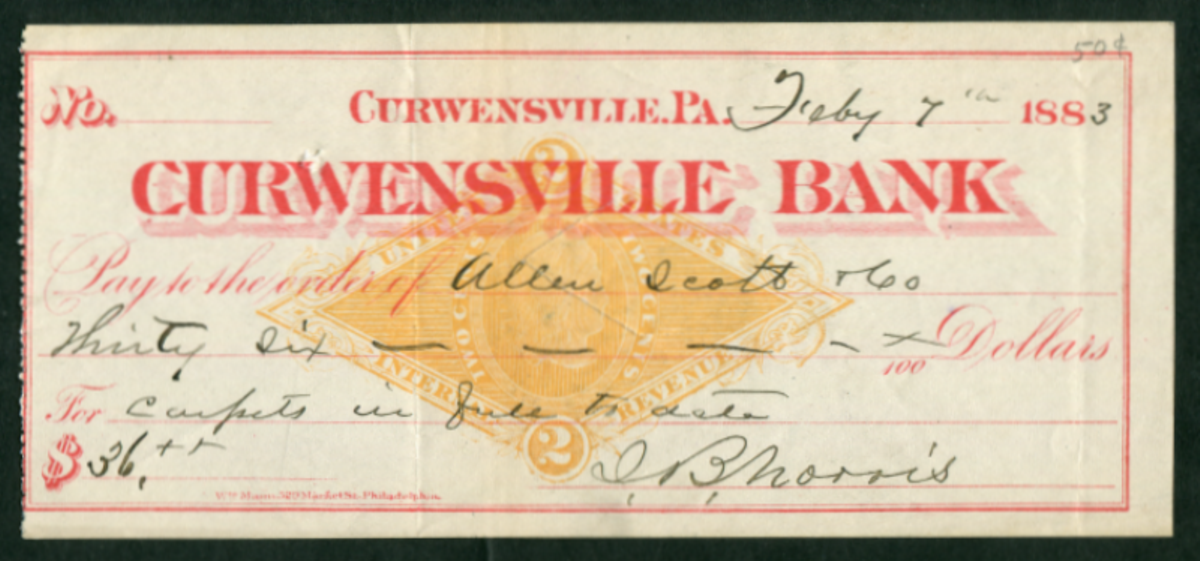 50¢
No. CURWENSVILLE, PA. Feby 7th 1883
2
CURWENSVILLE BANK
UNITED STATES
Pay to the order of Allen Scott & Co
TWO CENTS
Thirty Six — — — - x/100 Dollars
INTER REVENUE
For Carpets in full to date
2
$36.
I. B. Norris
529 Market St. Philadelphia.